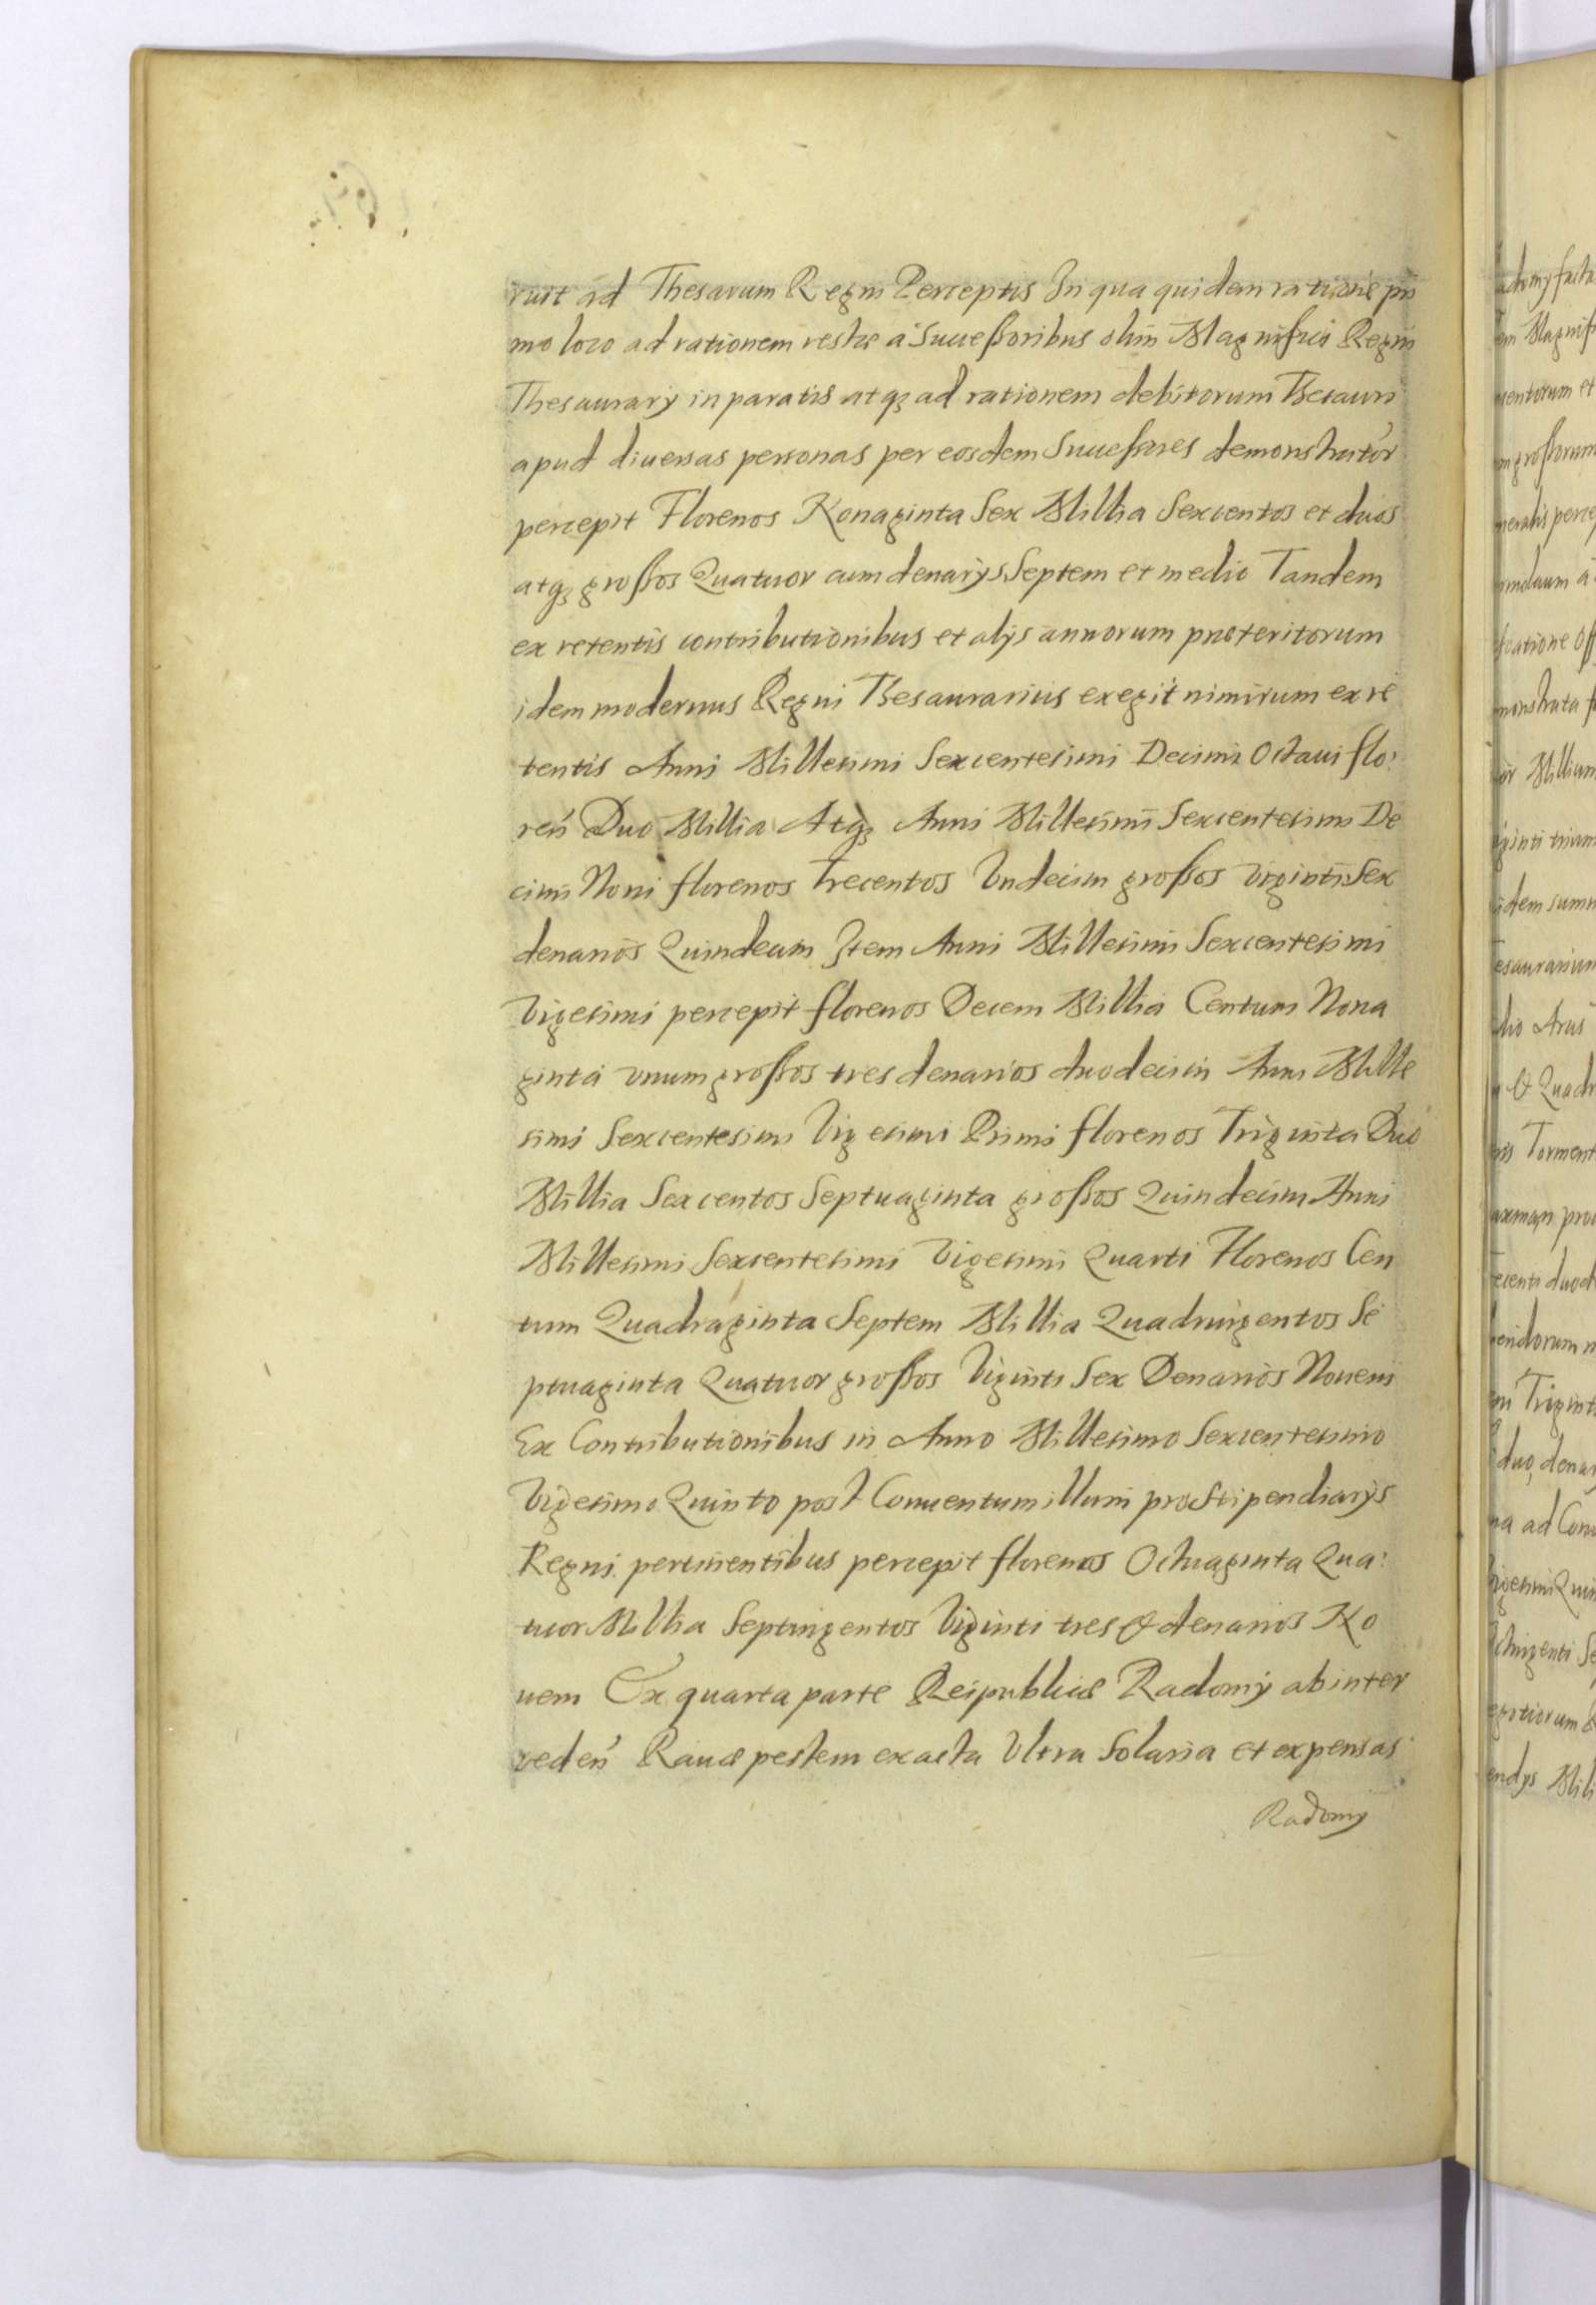 runt ad Thesarum Regni Perceptis In qua quidem ratione pri
mo loco ad rationem restæ a Successoribus olim Magnifici Regni
Thesaurarÿ in paratis atqꝫ ad rationem debitorum Thesauri
apud diuersas personas per eosdem Successores demonstrator
percepit Florenos Nonaginta Sex Millia Sexcentos et duos
atqꝫ grossos Quatuor cum denarÿs Septem et medio Tandem
ex retentis contributionibus et alÿs annorum præteritorum
idem modernus Regni Thesaurarius exegit nimirum ex re
tentis Anni Millesimi Sexcentesimi Decimi Octaui flo:
ren̄ Duo Millia Atqꝫ Anni Millesimi Sexcentesimi De
cimi Noni florenos Trecentos Vndecim grossos Viginti Sex
denarios Quindecim Item Anni Millesimi Sexcentesimi
Vigesimi percepit florenos Decem Millia Centum Nona
ginta vnum grossos tres denarios duodecim Anni Mille
simi Sexcentesimi Vigesimi Primi florenos Triginta Duo
Millia Sexcentos Septuaginta grossos Quindecim Anni
Millesimi Sexcentesimi Vigesimi Quarti Florenos Cen
tum Quadraginta Septem Millia Quadringentos Se
ptuaginta Quatuor grossos Viginti Sex Denarios Nouem
Ex Contributionibus in Anno Millesimo Sexcentesimo
Vigesimo Quinto post Conuentum illum pro Stipendiarÿs
Regni pertinentibus percepit florenos Octuaginta Qua:
tuor Millia Septingentos Viginti tres & denarios No
uem Ex quarta parte Reipublicæ Radomÿ ab inter
ceden̄ Rauæ pestem exacta Vltra Solaria et expensas
Radomÿ